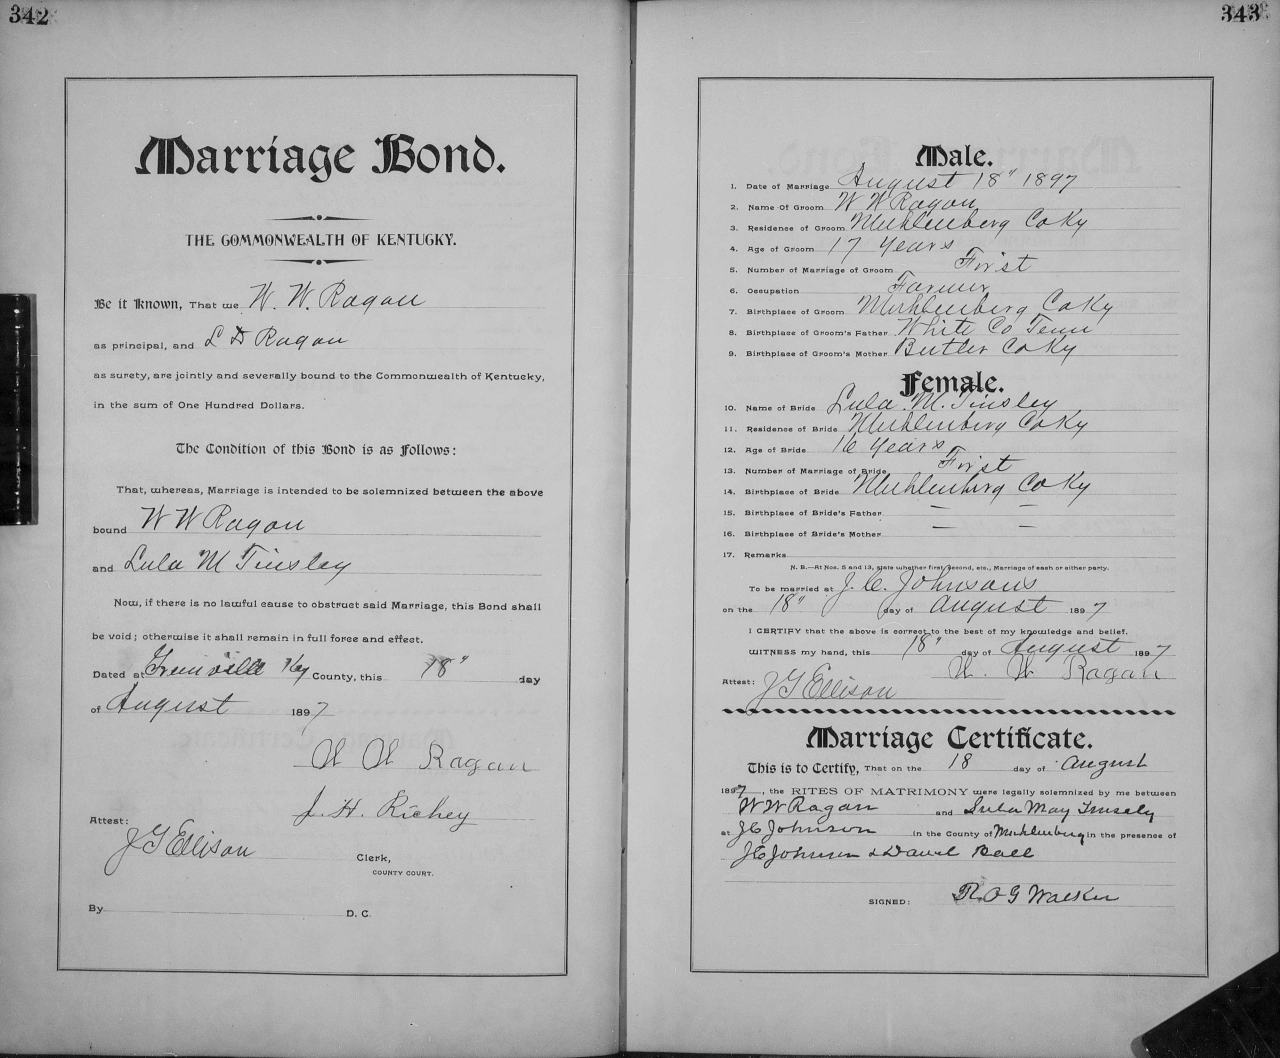 342
Marriage Bond.
THE COMMONWEALTH OF KENTUCKY.
Be it Known, That we W. W. Ragan
as principal, and L D Ragan
as surety, are jointly and severally bound to the Commonwealth of Kentucky,
in the sum of One Hundred Dollars.
The Condition of this Bond is as follows:
That, whereas, Marriage is intended to be solemnized between the above
bound W W Ragan
and Lula M Tinsley
Now, if there is no lawful cause to obstruct said Marriage, this Bond shall
be void; otherwise it shall remain in full force and effect.
Dated at Greenville Ky County, this 18" day
of August 1897
W W Ragan
J. H. Richey
Attest:
J G Ellison
Clerk,
COUNTY COURT.
By D. C.
343
Male.
1. Date of Marriage August 18" 1897
2. Name Of Groom W W Ragan
3. Residence of Groom Muhlenberg Co Ky
4. Age of Groom 17 Years
5. Number of Marriage of Groom First
6. Occupation Farmer
7. Birthplace of Groom Muhlenberg Co Ky
8. Birthplace of Groom's Father White Co Tenn
9. Birthplace of Groom's Mother Butler Co Ky
Female.
10. Name of Bride Lula M. Tinsley
11. Residence of Bride Muhlenberg Co Ky
12. Age of Bride 16 Years
13. Number of Marriage of Bride First
14. Birthplace of Bride Muhlenberg Co Ky
15. Birthplace of Bride's Father — —
16. Birthplace of Bride's Mother — —
17. Remarks
N. B.—At Nos. 5 and 13, state whether first, second, etc., Marriage of each or either party.
To be married at J. C. Johnsons
on the 18" day of August 1897
I CERTIFY that the above is correct to the best of my knowledge and belief.
WITNESS my hand, this 18" day of August 1897
W. W Ragan
Attest: J G Ellison
Marriage Certificate.
This is to Certify, That on the 18 day of August
1897, the RITES OF MATRIMONY were legally solemnized by me between
W W Ragan and Lula May Tinsely
at J C Johnson in the County of Muhlenburg in the presence of
J C Johnson & Daniel Ball
SIGNED: R. O G Walker